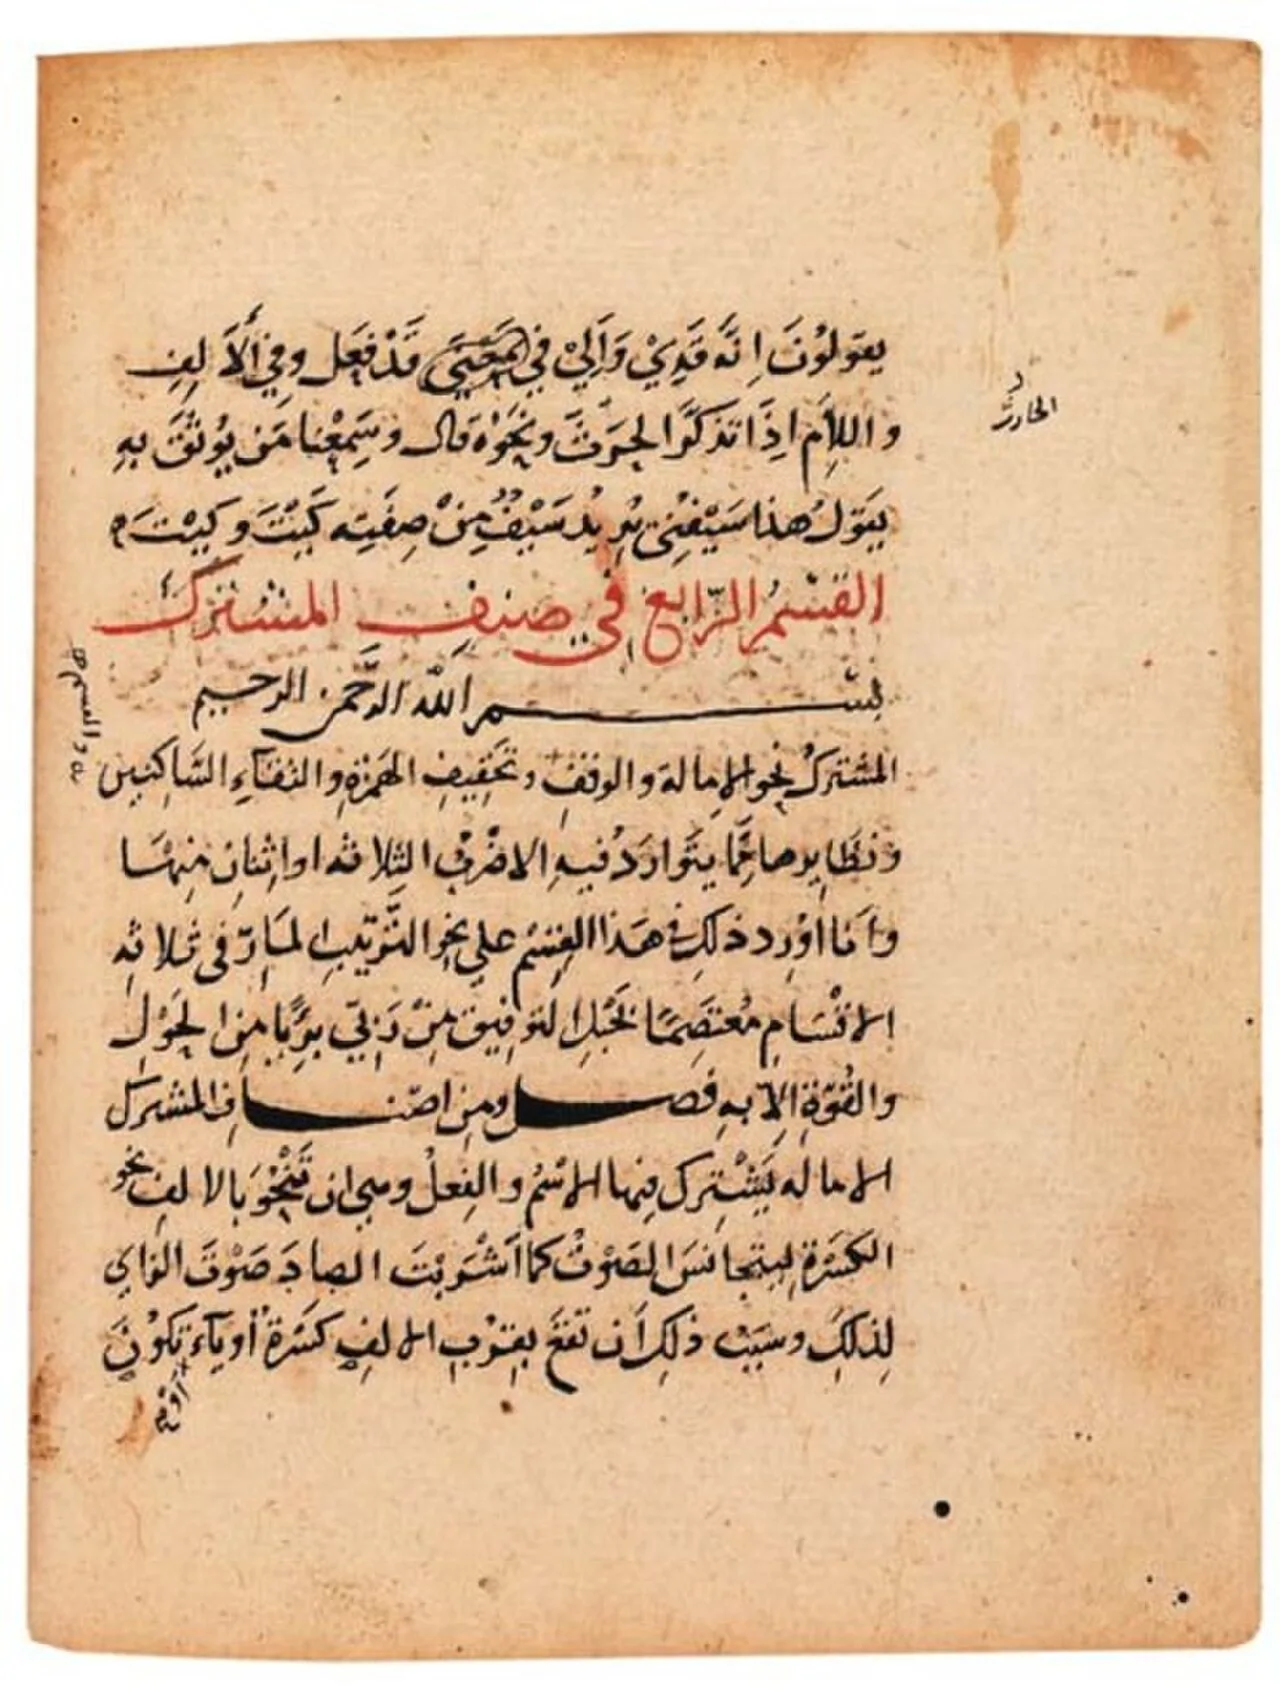 يقولون إنه قدي وألي في المعنى قد فعل وفي الألف
واللام إذا تذكر الحرث ونحوه قال وسمعنا من يوثق به
يقول هذا سيفني يريد سيف من صفته كيت وكيت
القسم الرابع في صنف المشترك
بسم الله الرحمن الرحيم
المشترك نحو الإمالة والوقف وتخفيف الهمزة والتقاء الساكنين
ونظايرها مما يتوارد فيه الاضرب الثلاثه او اثنان منها
وأنا أورد ذلك في هذا القسم علي نحو الترتيب المار في ثلاثه
الاقسام معتصما بحبل التوفيق من ربي بريا من الحول
والقوة إلا به فصل ومن اصناف المشترك
الاماله يشترك فيها الاسم والفعل وهي ان تنحو بالالف نحو
الكسرة ليتجانس الصوت كما أشربت الصاد صوت الزاي
لذلك وسبب ذلك أن تقع بقرب الالف كسرة أو ياء تكون
الحارث